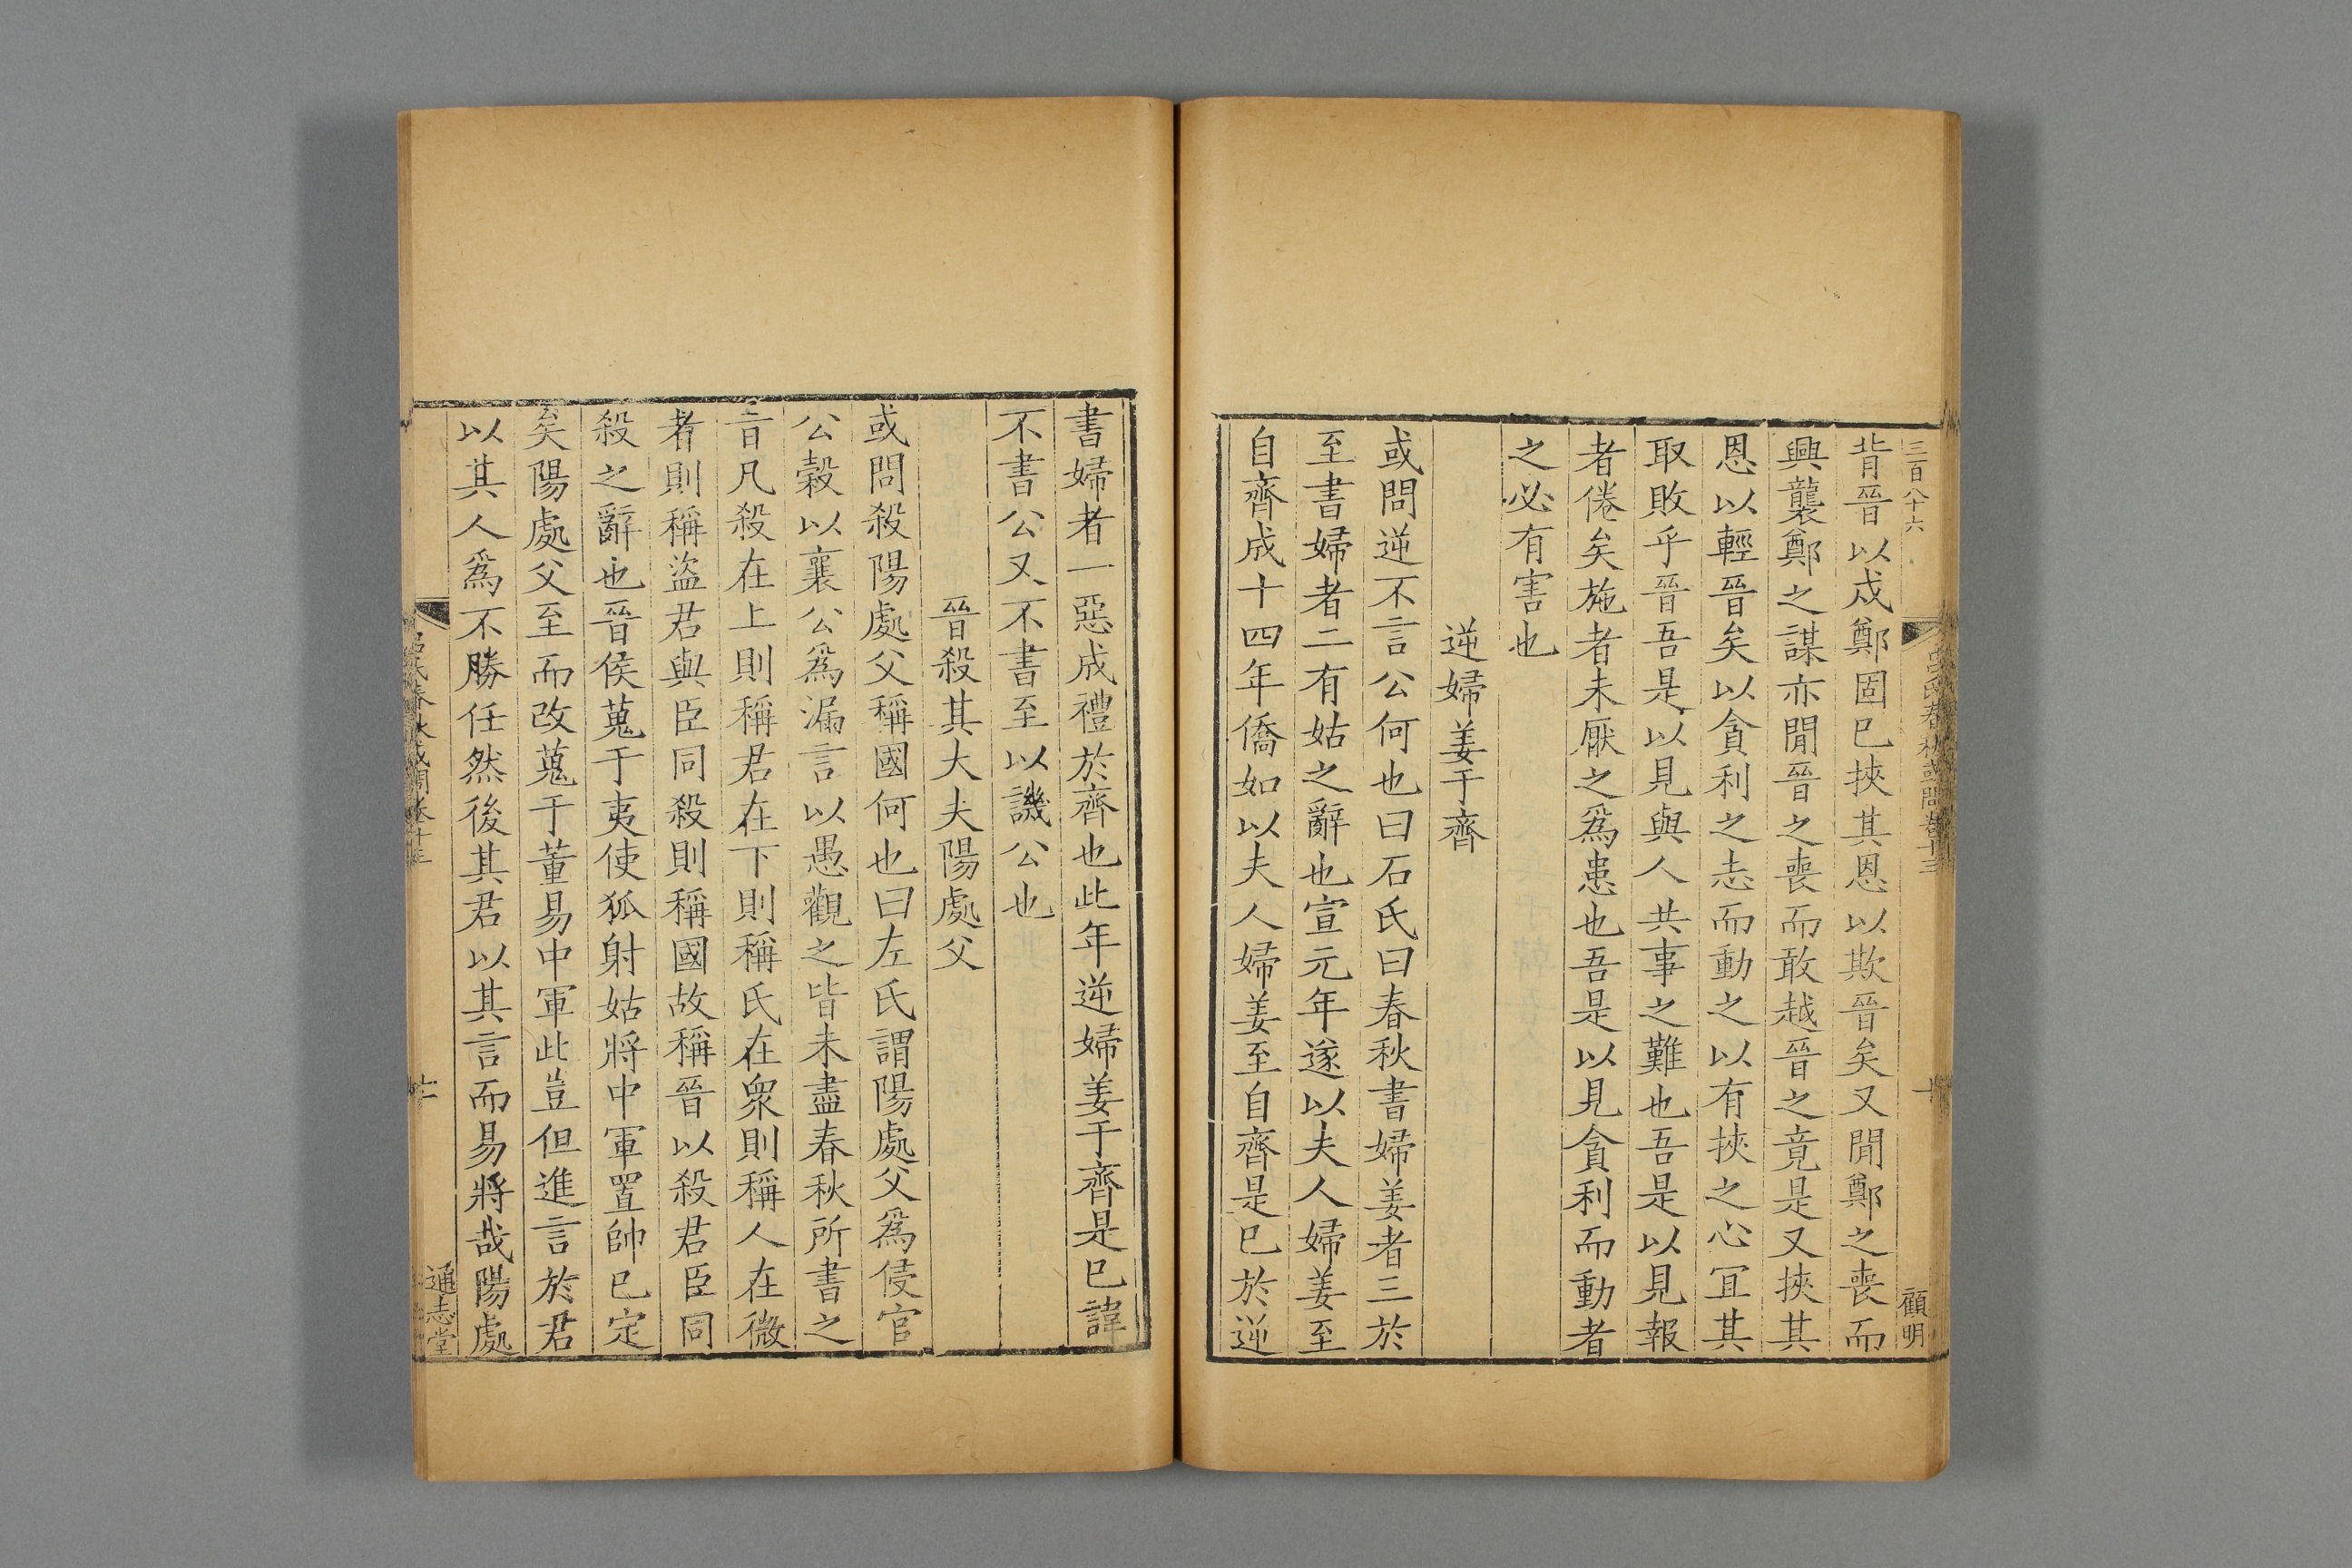 三百八十六
呂氏春秋或問卷十三
十
顧明
背晉以戍鄭固已挾其恩以欺晉矣又閒鄭之喪而
興襲鄭之謀亦閒晉之喪而敢越晉之竟是又挾其
恩以輕晉矣以貪利之志而動之以有挾之心宜其
取敗乎晉吾是以見與人共事之難也吾是以見報
者倦矣施者未厭之爲患也吾是以見貪利而動者
之必有害也
逆婦姜于齊
或問逆不言公何也曰石氏曰春秋書婦姜者三於
至書婦者二有姑之辭也宣元年遂以夫人婦姜至
自齊成十四年僑如以夫人婦姜至自齊是已於逆
書婦者一惡成禮於齊也此年逆婦姜于齊是已諱
不書公又不書至以譏公也
晉殺其大夫陽處父
或問殺陽處父稱國何也曰左氏謂陽處父爲侵官
公穀以襄公爲漏言以愚觀之皆未盡春秋所書之
㫖凡殺在上則稱君在下則稱氏在衆則稱人在微
者則稱盜君與臣同殺則稱國故稱晉以殺君臣同
殺之辭也晉侯蒐于夷使狐射姑將中軍置帥已定
矣陽處父至而改蒐于董易中軍此豈但進言於君
以其人爲不勝任然後其君以其言而易將哉陽處
呂氏春秋或問卷十三
十一
通志堂